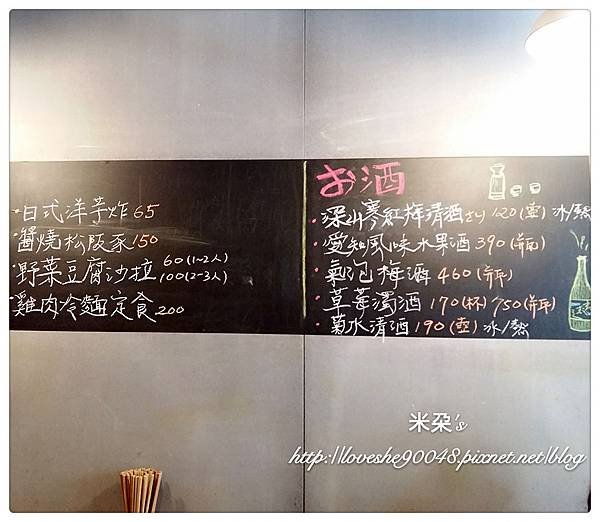 ・日式洋芋炸 65
・醬燒松阪豕 150
・野菜豆腐沙拉 60(1~2人)
100(2~3人)
・雞肉冷麵定食 200
お酒
・深山寒紅梅清酒 120(壺) 冰/熱
・愛知風味水果酒 390(瓶)
・氣泡梅酒 460(瓶)
・草莓濁酒 170(杯) 750(瓶)
・菊水清酒 190(壺) 冰/熱
米朵's
http://loveshe90048.pixnet.net/blog